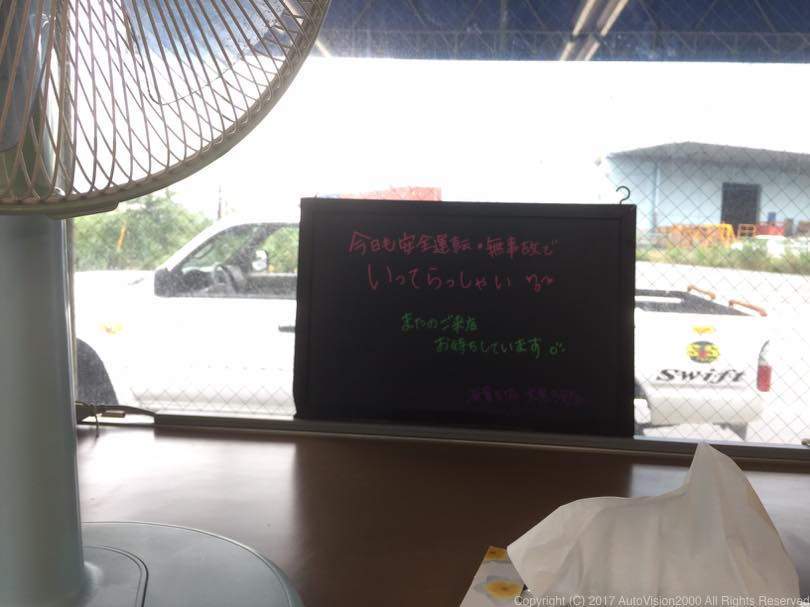 今日も安全運転・無事故で
いってらっしゃい
またのご来店
お待ちしています
Swift
Copyright (C) 2017 AutoVision2000 All Rights Reserved